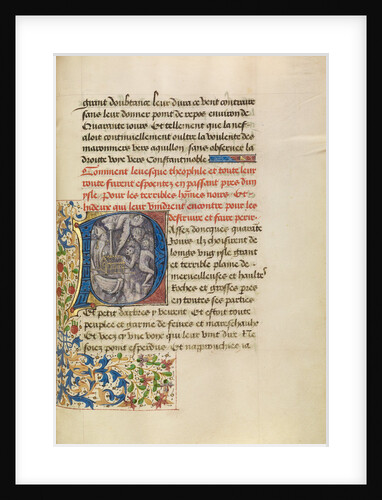 grant doubtance leur dura ce vent contraire
sans leur donner point de repos environ de
Quarante iours Et tellement que la nef
aloit continuellement oultre la voulente des
maronniers vers aquillon sans obseruer la
droitte voye vers Constantinoble
Comment leuesque theophile et toute leur
route furent espentez en passant pres dun
ysle Pour les terribles homes noirs Et
hideux qui leur vindrent encontre pour les
destruire et faire perir
Assez doncques quarāte
Iours ilz choisirent de
loings vng ysle grant
et terrible plaine de
merueilleuses et haultes
Roches et grosses pres
en toutes ses parties
Et petit darbres y veirent Et estoit toute
peuplee et garnie de feures et mareschaulx
Et veez cy vne voix qui leur vint dire Ne
soiez point esperdus Et napprouchiez ia